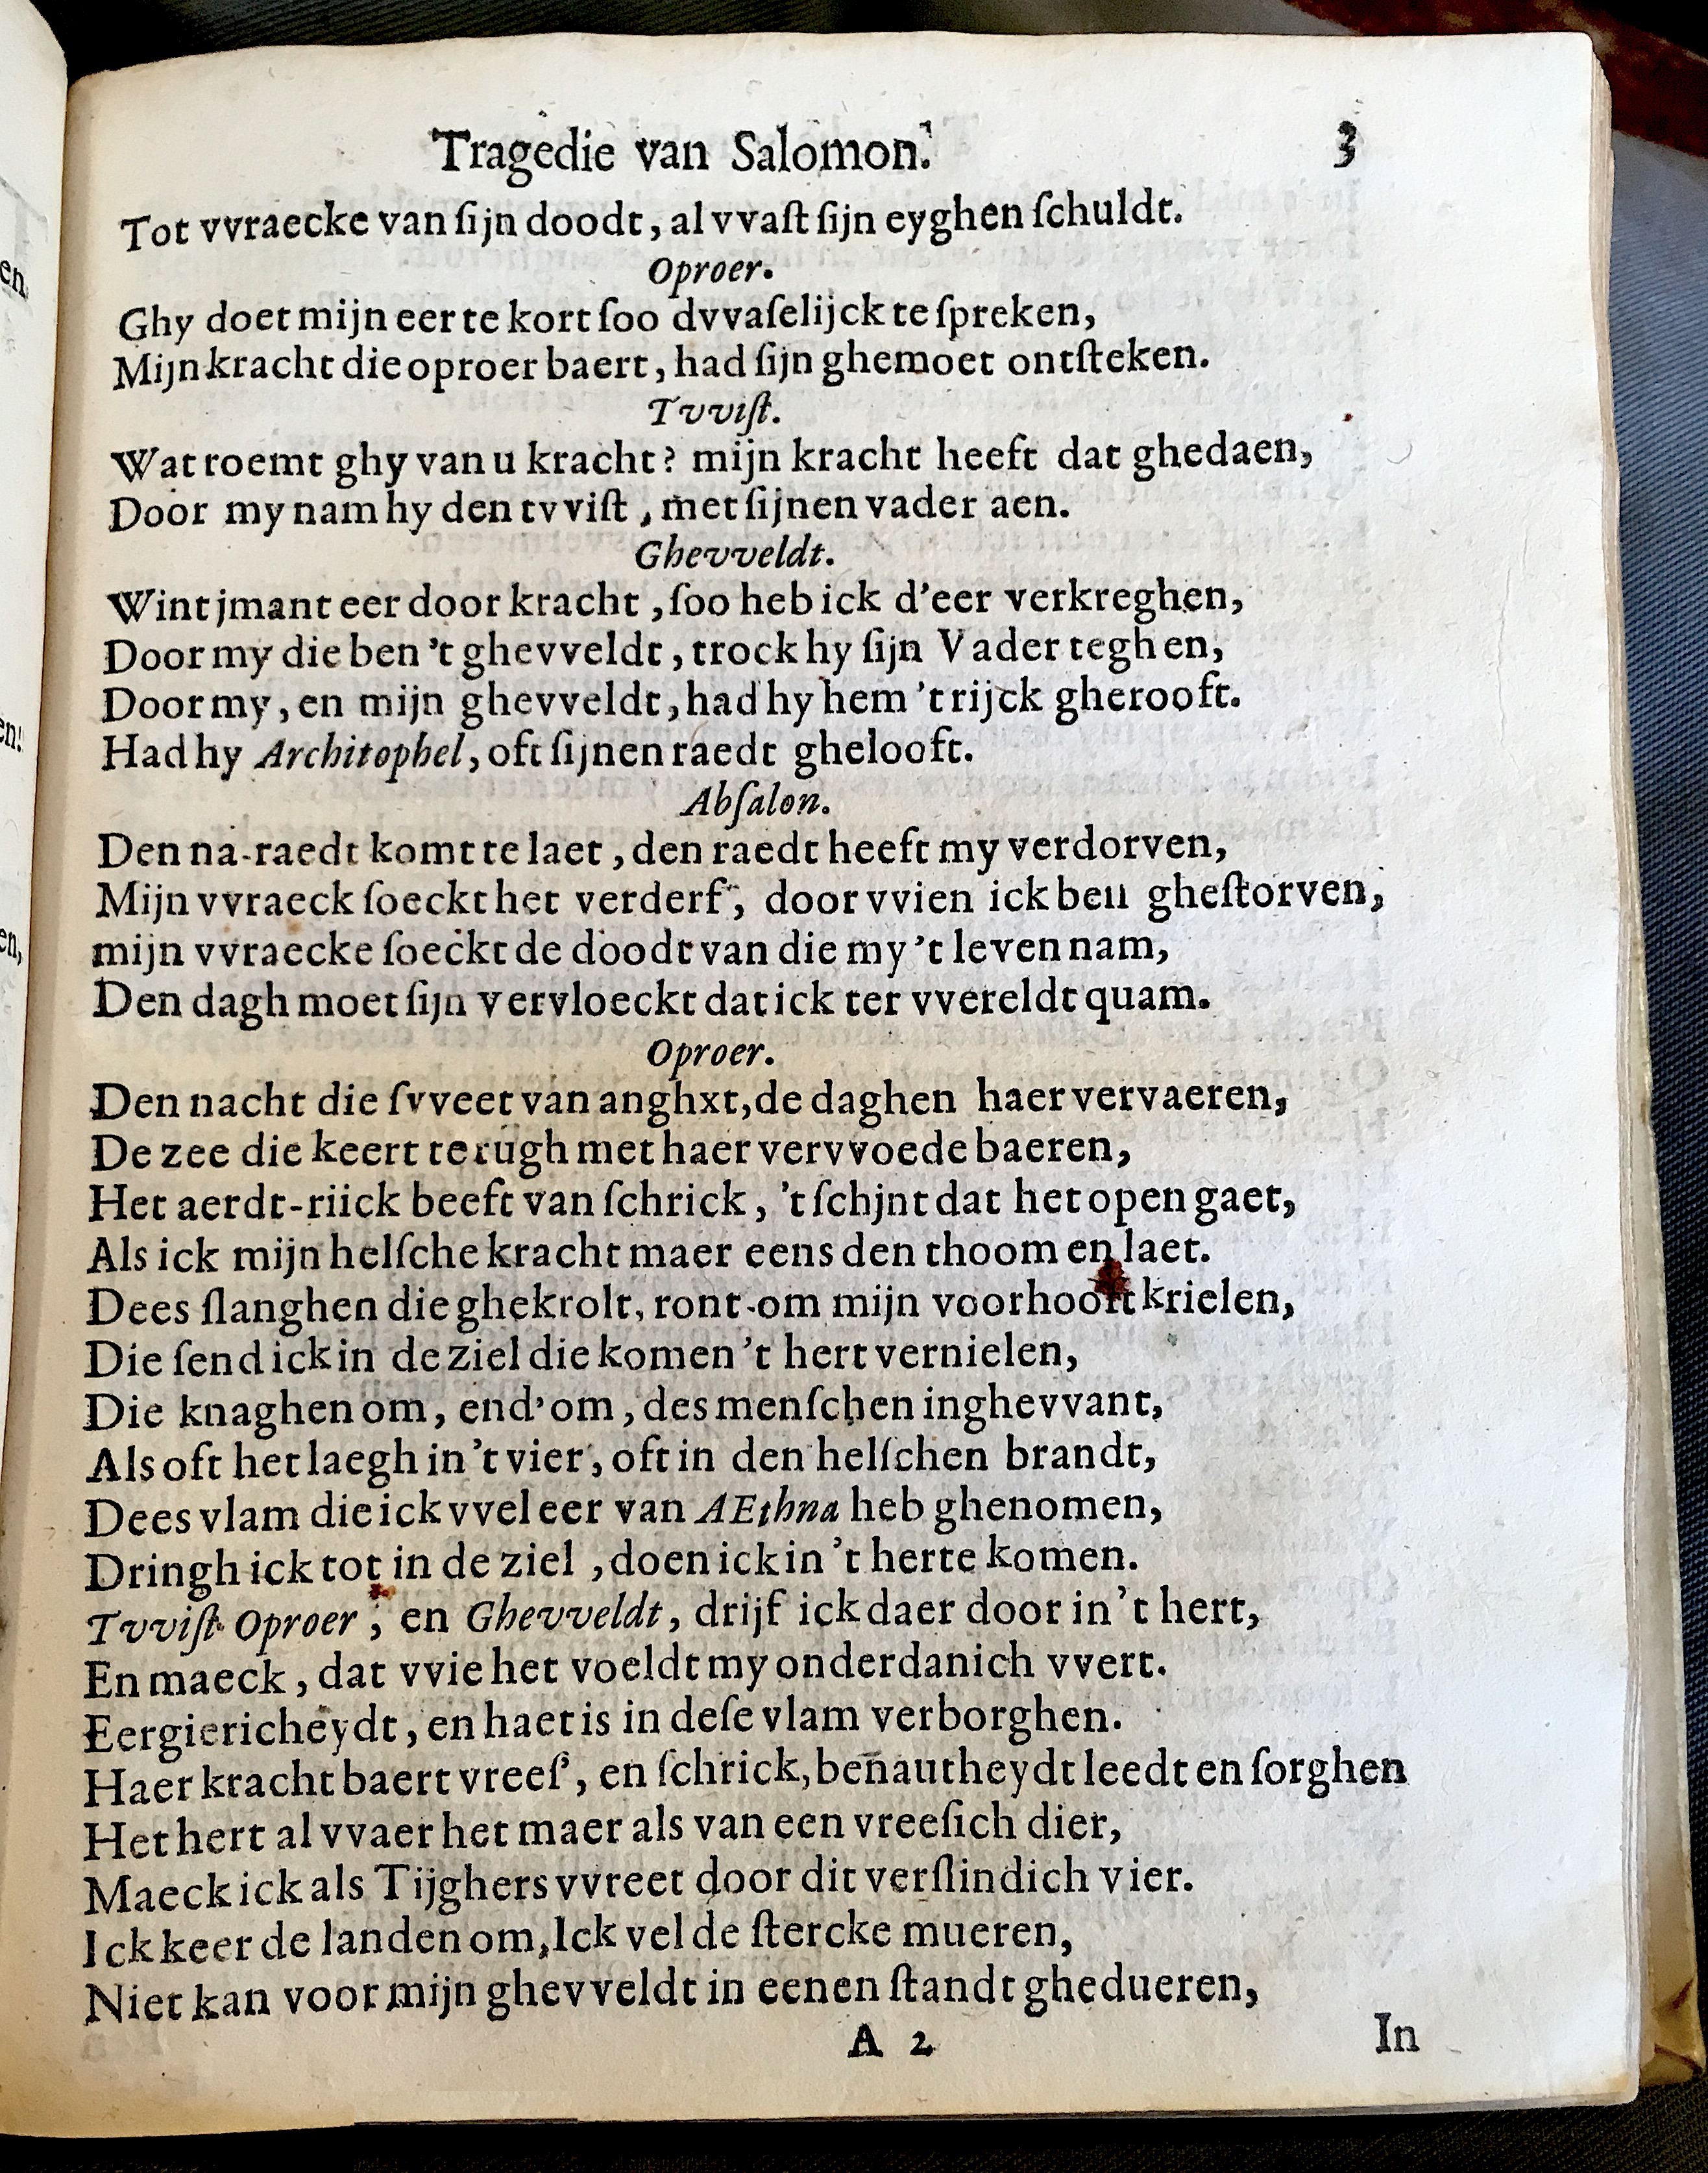 Tragedie van Salomon. 3
Tot vvraecke van ſijn doodt, al vvaſt ſijn eyghen ſchuldt.
Oproer.
Ghy doet mijn eer te kort ſoo dvvaſelijck te ſpreken,
Mijn kracht die oproer baert, had ſijn ghemoet ontſteken.
Tvviſt.
Wat roemt ghy van u kracht? mijn kracht heeft dat ghedaen,
Door my nam hy den tvviſt, met ſijnen vader aen.
Ghevveldt.
Wint jmant eer door kracht, ſoo heb ick d'eer verkreghen,
Door my die ben 't ghevveldt, trock hy ſijn Vader teghen,
Door my, en mijn ghevveldt, had hy hem 't rijck gherooft.
Had hy Architophel, oft ſijnen raedt ghelooft.
Abſalon.
Den na-raedt komt te laet, den raedt heeft my verdorven,
Mijn vvraeck ſoeckt het verderf, door vvien ick ben gheſtorven,
mijn vvraecke ſoeckt de doodt van die my 't leven nam,
Den dagh moet ſijn vervloeckt dat ick ter vvereldt quam.
Oproer.
Den nacht die ſvveet van anghxt, de daghen haer vervaeren,
De zee die keert terugh met haer vervvoede baeren,
Het aerdt-riick beeft van ſchrick, 't ſchjnt dat het open gaet,
Als ick mijn helſche kracht maer eens den thoom en laet.
Dees ſlanghen die ghekrolt, ront-om mijn voorhooft krielen,
Die ſend ick in de ziel die komen 't hert vernielen,
Die knaghen om, end' om, des menſchen inghevvant,
Als oft het laegh in 't vier, oft in den helſchen brandt,
Dees vlam die ick vvel eer van AEthna heb ghenomen,
Dringh ick tot in de ziel, doen ick in 't herte komen.
Tvviſt Oproer, en Ghevveldt, drijf ick daer door in 't hert,
En maeck, dat vvie het voeldt my onderdanich vvert.
Eergiericheydt, en haet is in deſe vlam verborghen.
Haer kracht baert vreeſ', en ſchrick, benautheydt leedt en ſorghen
Het hert al vvaer het maer als van een vreeſich dier,
Maeck ick als Tijghers vvreet door dit verſlindich vier.
Ick keer de landen om, Ick vel de ſtercke mueren,
Niet kan voor mijn ghevveldt in eenen ſtandt ghedueren,
A 2 In